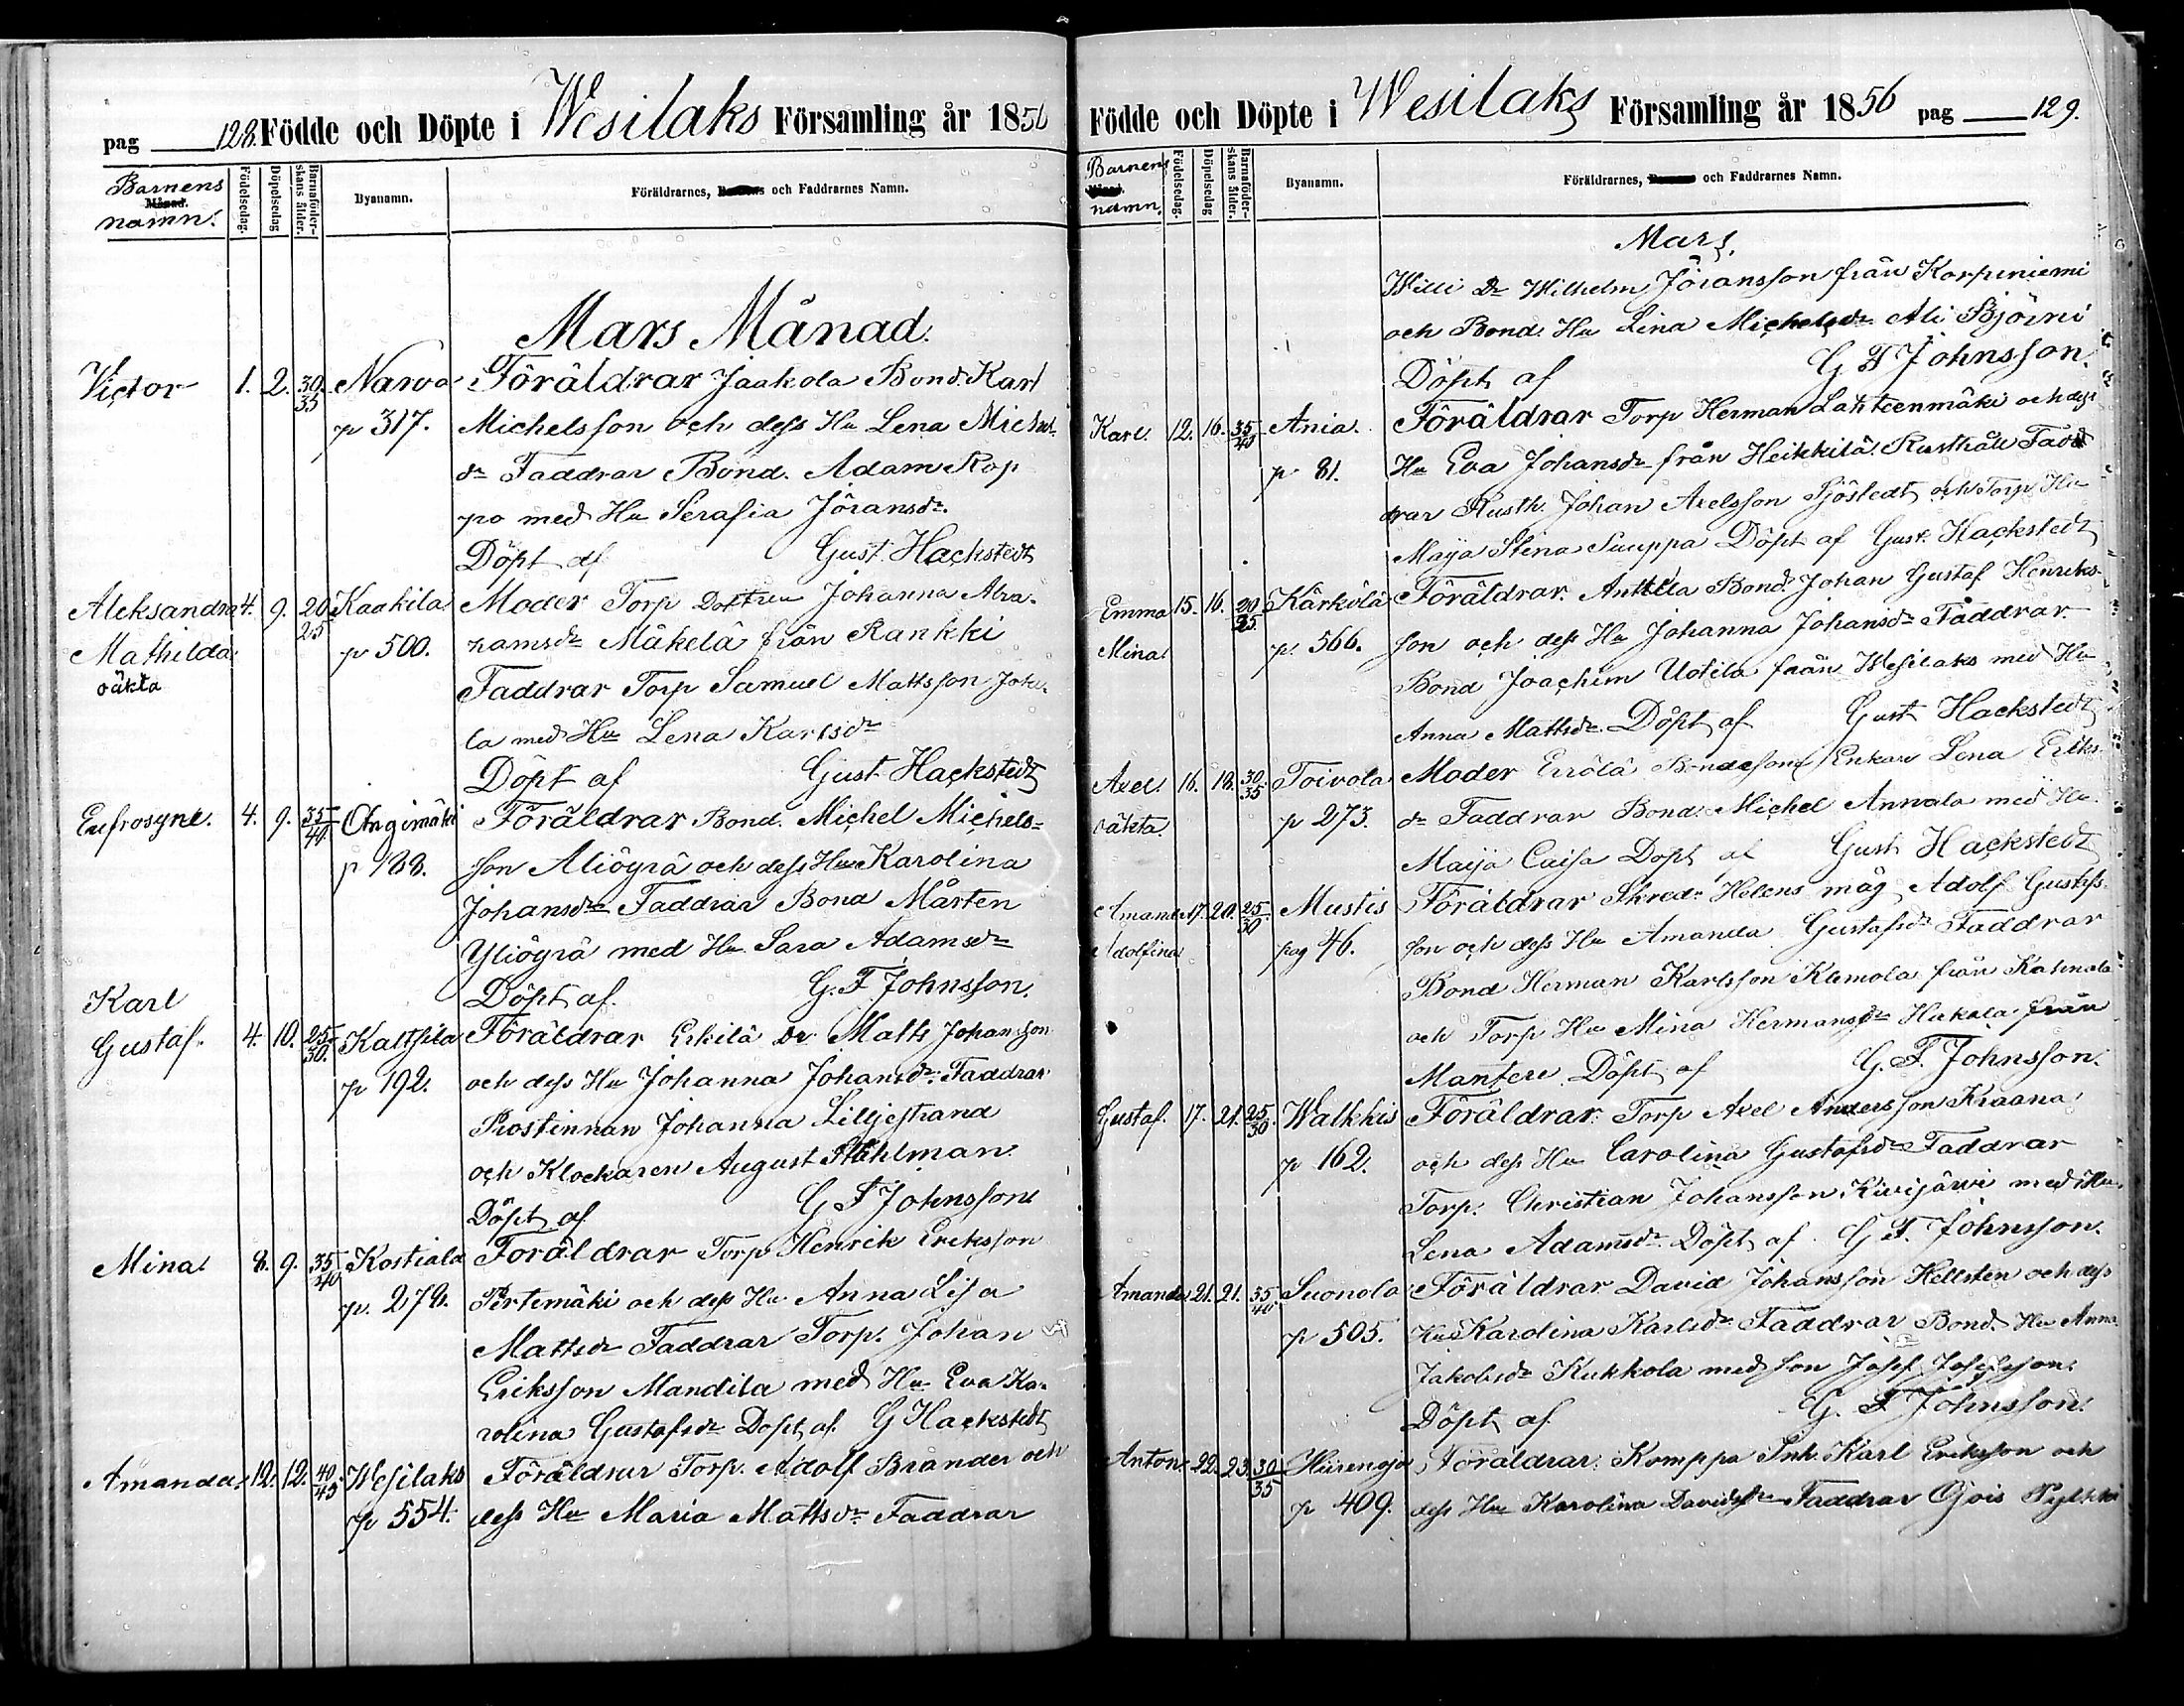 pag 128. Födde och Döpte i Wesilaks Församling år 1856
Barnens
Månad.
namn.
Födelsedag.
Döpelsedag
Barnaföder-
skans ålder.
Byanamn.
Föräldrarnes, Barnens och Faddrarnes Namn.
Mars Månad.
Victor 1. 2. 30/35 Narva Föräldrar Jaakola Bond. Karl
p 317. Michelsson och dess Hu Lena Michels
dr Faddrar Bond. Adam Rop
po med Hu Serafia Jöransdr.
Döpt af Gust. Hackstedt
Aleksandra 4. 9. 20/25 Kaakila Moder Torp Dottren Johanna Abra-
Mathilda p 500. hamsdr Mäkelä från Rankki
oäkta Faddrar Torp Samuel Mattsson Joki-
la med Hu Lena Karlsdr
Döpt af Gust. Hackstedt
Eufrosyne. 4. 9. 35/40 Ongimäki Föräldrar Bond. Michel Michels=
p 188. son Aliöyrä och dess Hu Karolina
Johansdr Faddrar Bond Mårten
Yliöyrä med Hu Sara Adamsdr
Döpt af. G. F Johnsson.
Karl
Gustaf. 4. 10. 25/30. Kaltsila Föräldrar Erkilä Dr Matts Johansson
p 192. och dess Hu Johanna Johansdr. Faddrar
Prostinnan Johanna Lilljestrand
och Klockaren August Ståhlman
Döpt af G F Johnsson
Mina 8. 9. 35/40 Kostiala Föräldrar Torp Henrik Eriksson
p. 279. Pertemäki och dess Hu Anna Lisa
Mattsdr Faddrar Torp. Johan
Eriksson Mandila med Hu Eva Ka-
rolina Gustafsdr Döpt af. G Hackstedt
Amanda. 12. 12. 40/45 Wesilaks Föräldrar Torp. Adolf Brander och
p 554. dess Hu Maria Mattsdr. Faddrar
Födde och Döpte i Wesilaks Församling år 1856 pag 129.
Barnens
Månad.
namn.
Födelsedag.
Döpelsedag
Barnaföder-
skans ålder.
Byanamn.
Föräldrarnes, Barnens och Faddrarnes Namn.
Mars.
Willi Dr Wilhelm Jöransson från Korpiniemi
och Bond. Hu Lina Michelsdr Ali Björni
Döpt af G F Johnsson.
Karl 12. 16. 35/40 Ania. Föräldrar Torp Herman Lahteenmäki och dess
p 81. Hu Eva Johansdr från Heikkilä Rusthåll Fad
drar Rusth. Johan Axelsson Sjöstedt och Torp Hu
Maija Stina Suuppa Döpt af Gust. Hackstedt
Emma 15. 16. 20/25. Kärkölä Föräldrar. Anttila Bond. Johan Gustaf Henriks-
Mina p. 566. son och dess Hu Johanna Johansdr Faddrar
Bond Joachim Uotila från Wesilaks med Hu
Anna Mattsdr Döpt af Gust Hackstedt
Axel 16. 18. 30/35. Toivola Moder Errölä Bondesons Enkan Lena Eriks
oäkta p 273. dr Faddrar Bond. Michel Annala med Hu
Maija Caisa Döpt af Gust Hackstedt
Amanda 17. 20. 25/30 Mustis Föräldrar Skred. Helens måg Adolf Gustafs-
Adolfina pag 46. son och dess Hu Amanda Gustafsdr Faddrar
Bond Herman Karlsson Klemola från Kahnala
och Torp Hu Mina Hermansdr Hukala från
Mantere Döpt af G. F. Johnsson.
Gustaf. 17. 21. 25/30 Walkkis Föräldrar. Torp Axel Andersson Kraana
p 162. och dess Hu Carolina Gustafsdr Faddrar
Torp. Christian Johansson Kivijärvi med Hu
Lena Adamsdr Döpt af G F. Johnsson.
Amanda 21. 21. 35/40 Suonola Föräldrar David Johansson Hellsten och dess
p 505. Hu Karolina Karlsdr Faddrar Bond. Hu Anna
Jakobsdr Kukkola med son Josef Josefsson.
Döpt af G. F Johnsson.
Anton 22. 23. 30/35 Hiirenoja Föräldrar. Komppa Inh. Karl Eriksson och
p 409. dess Hu Karolina Davidsdr Faddrar Ojois Pylkkö